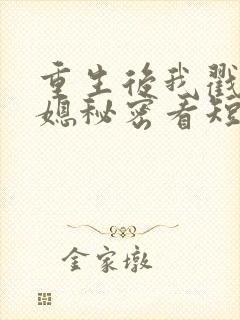 重生后我戳
媳秘密看短
金家墩